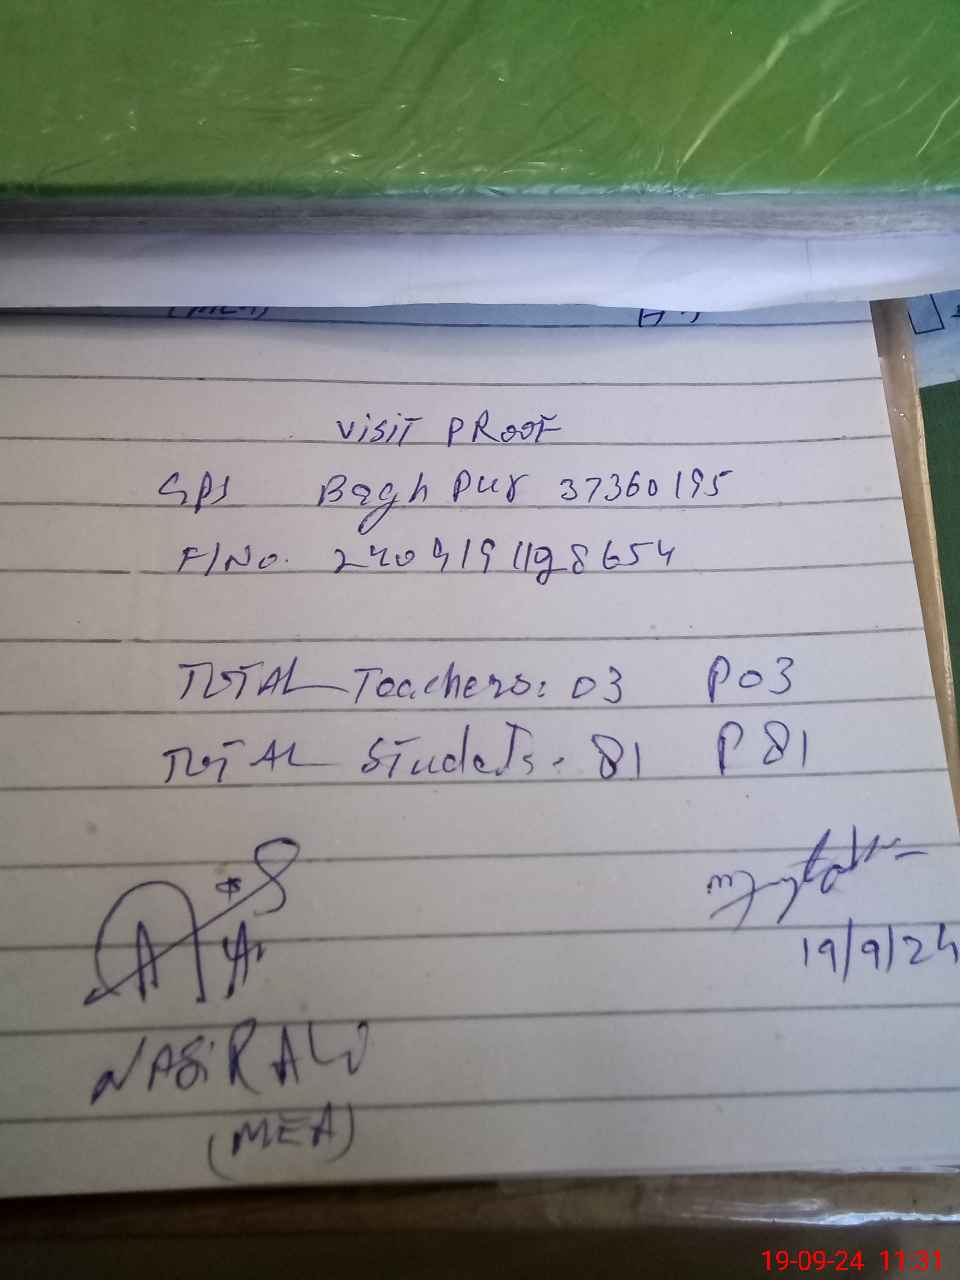 VISIT PROOF
GPS Baghpur 37360195
F/No. 2409191198654
TOTAL Teachers: 03 P 03
TOTAL Students. 81 P 81
19/9/24
NASIR ALI
(MEA)
19-09-24 11:31